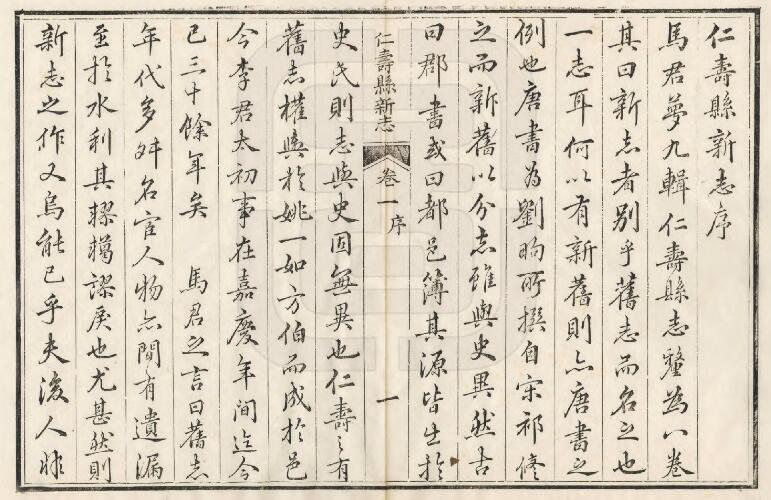 仁壽縣新志序
馬君夢九輯仁壽縣志釐為八卷
其曰新志者别乎舊志而名之也
一志耳何以有新舊則亦唐書之
例也唐書為劉昫所撰自宋祁修
之而新舊以分志雖與史異然古
曰郡書或曰都邑簿其源皆生於
仁壽縣新志 卷一序 一
史氏則志與史固無異也仁壽之有
舊志權輿於姚一如方伯而成於邑
令李君太初事在嘉慶年間迄今
已三十餘年矣 馬君之言曰舊志
年代多舛名宦人物亦間有遺漏
至於水利其轇轕謬戾也尤甚然則
新志之作又烏能已乎夫後人